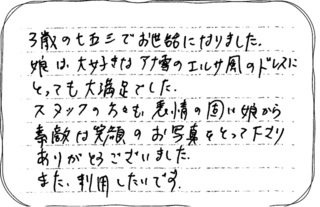 3歳の七五三でお世話になりました。
娘は、大好きなアナ雪のエルサ風のドレスに
とっても大満足でした。
スタッフの方々も表情の固い娘から
素敵な笑顔のお写真をとって下さり
ありがとうございました。
また、利用したいです。